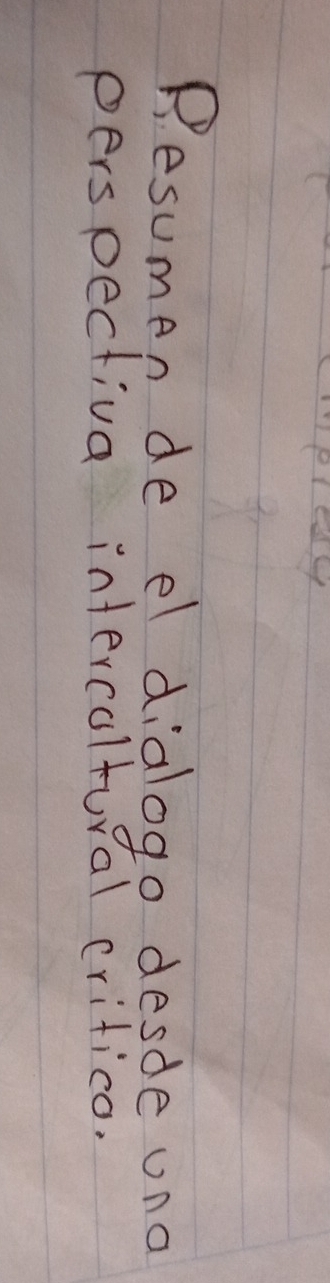 Resumen de el dialogo desde una
perspectiva intercultural critica.